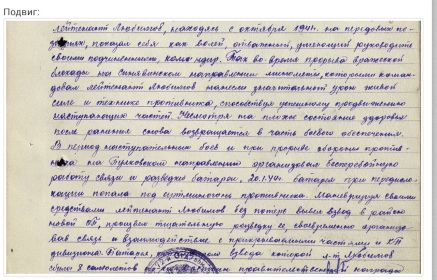 Подвиг:
лейтенант Любимов, находясь с октября 1941г. на передовых по-
зициях, показал себя как волей, отважный, умеющий руководить
своими подчиненными командир. Так во время прорыва вражеской
блокады на Синявинском направлении минометы, которыми коман-
довал лейтенант Любимов нанесли значительный урон живой
силе и технике противника, способствуя успешному продвижению
наступающих частей. Несмотря на плохое состояние здоровья
после ранения снова возвращается в часть боевого обеспечения.
В период наступательных боев и при прорыве обороны против-
ника на Пулковском направлении организовал бесперебойную
работу связи и разведки батареи. 20.1.44г. батарея при передис-
локации попала под артминогонь противника. Маневрируя своими
средствами лейтенант Любимов без потерь вывел взвод в район
новой ОП, произвел тщательную разведку ее, своевременно организо
вав связь и взаимодействие с прикрываемыми частями и КП
дивизиона. Батарея, взвода которой л-т Любимов
сбила 8 самолетов правительственной награды